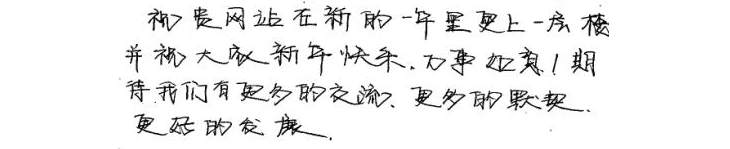 祝贵网站在新的一年里更上一层楼
并祝大家新年快乐.万事如意!期
待我们有更多的交流、更多的默契.
更好的发展.